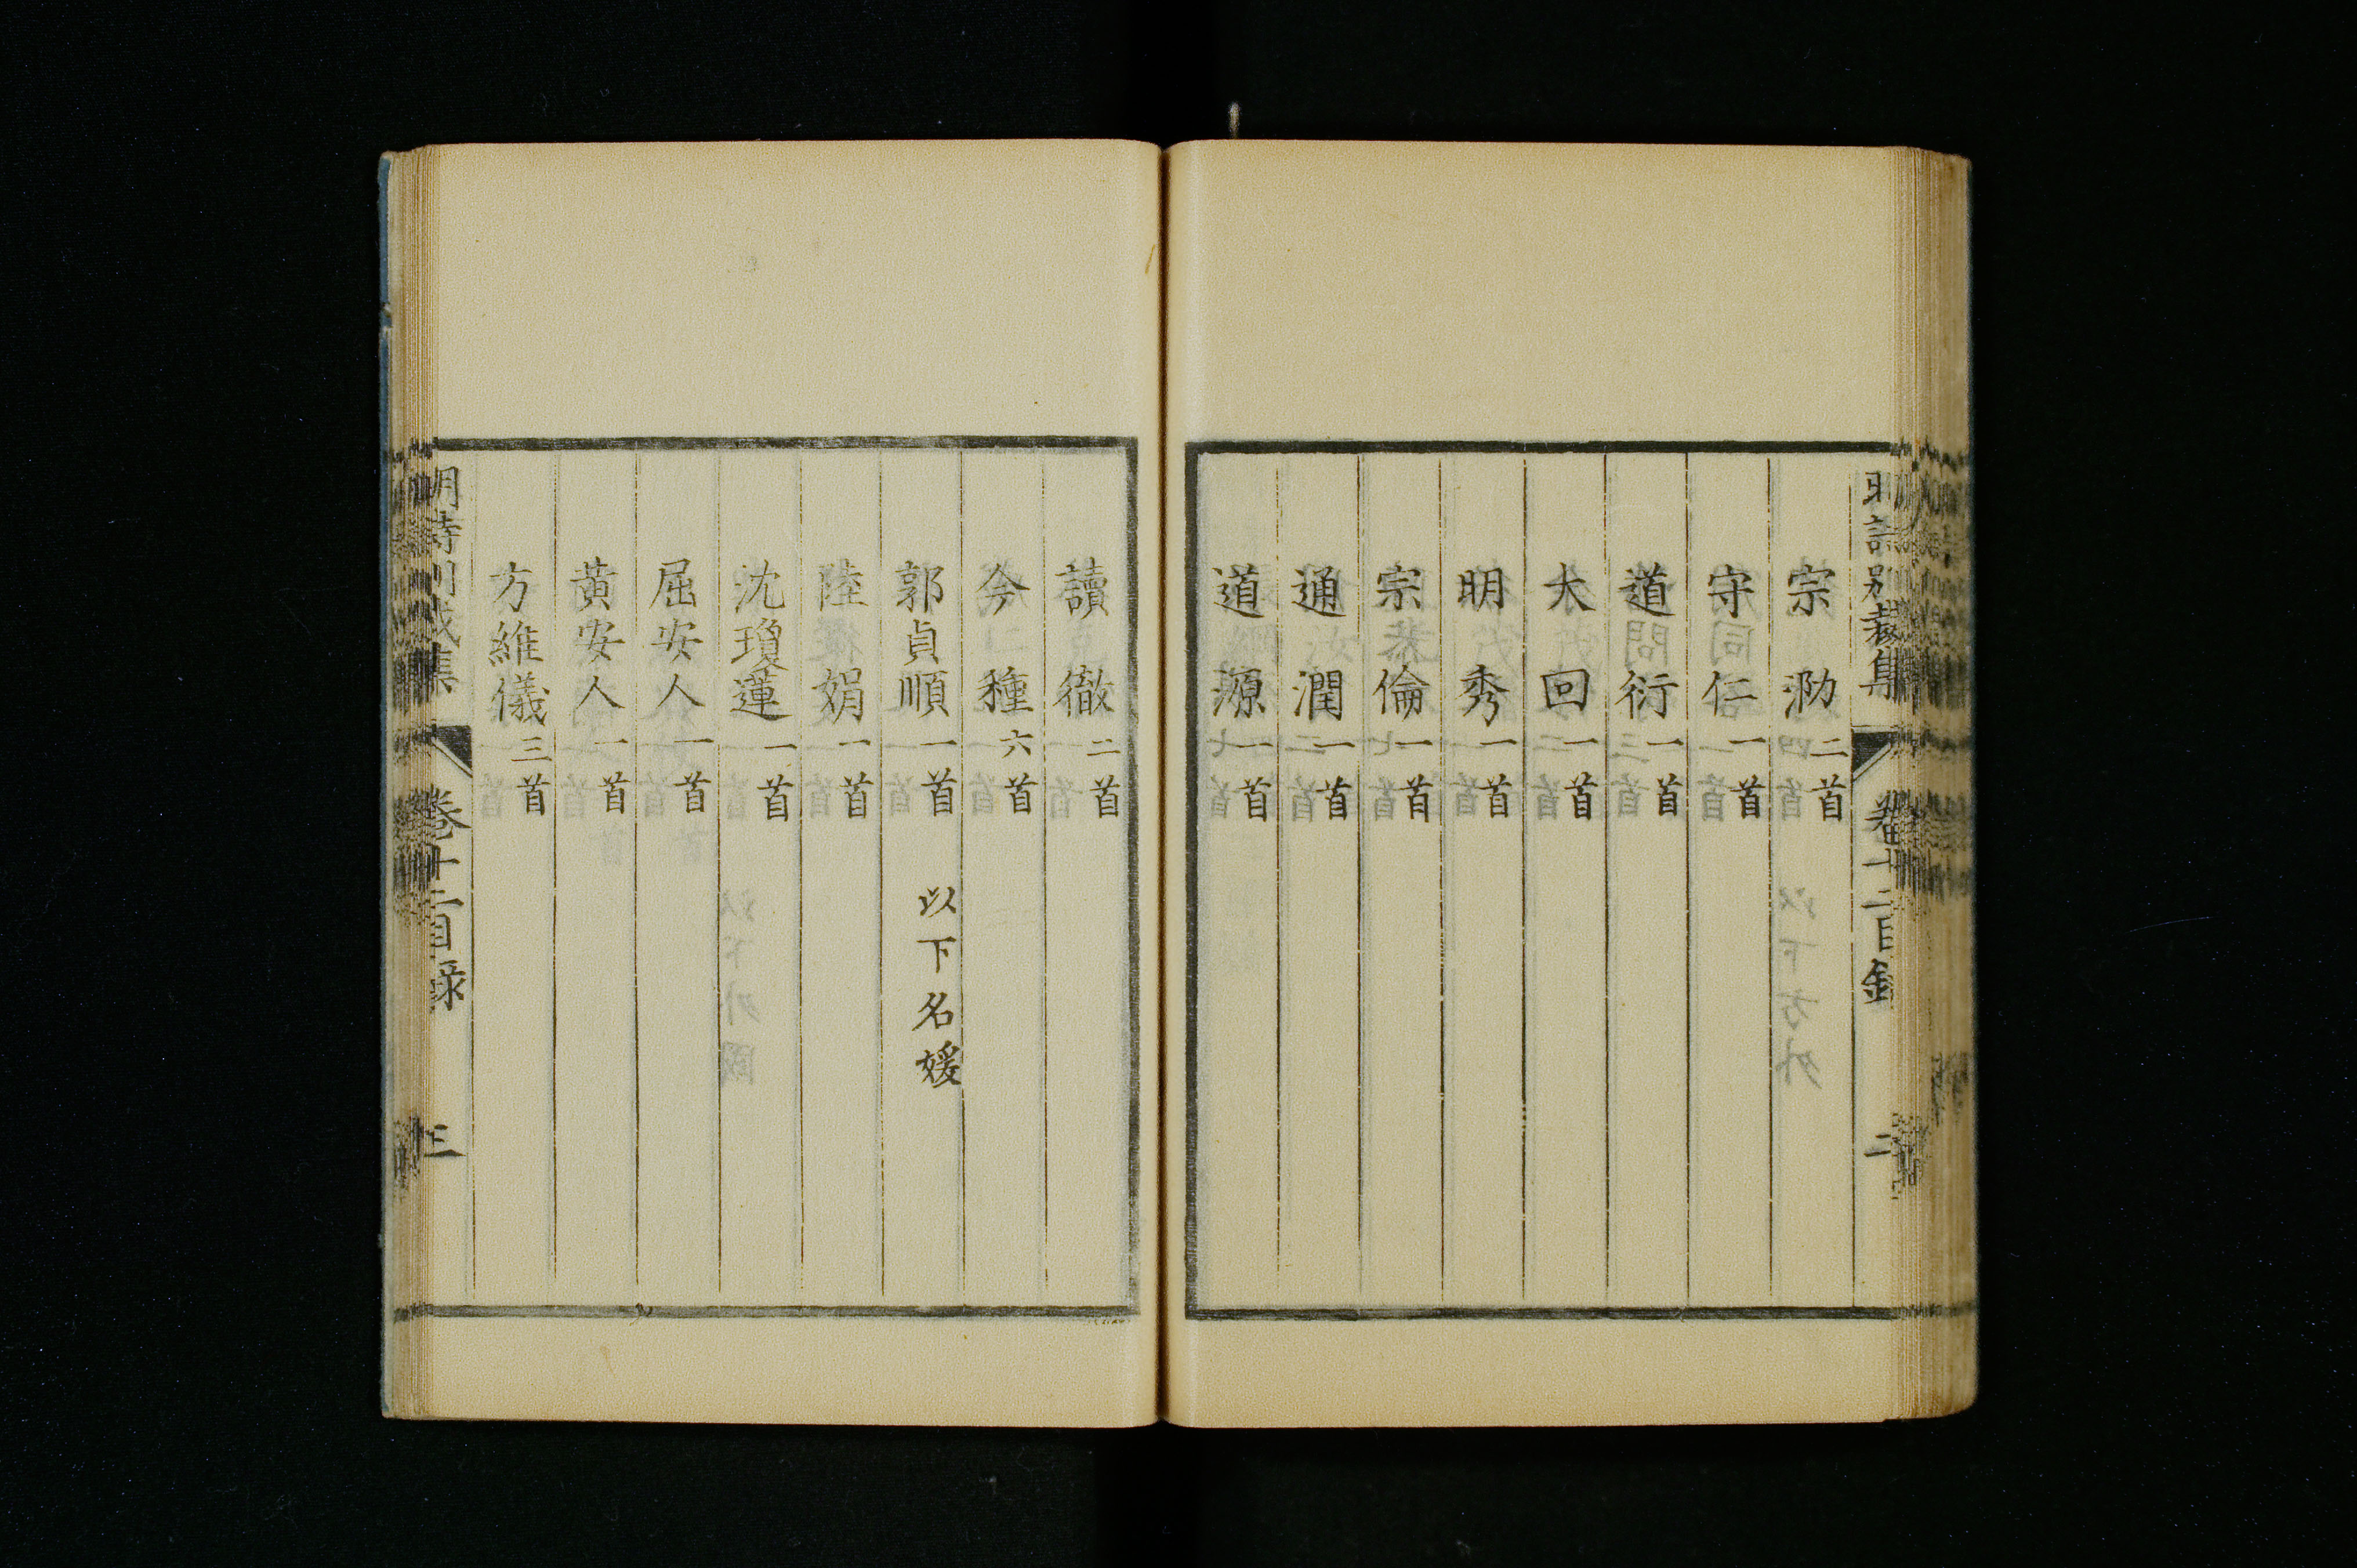 明詩別裁集 卷十二目錄 二
宗泐 二首
守仁 一首
道衍 一首
大回 一首
明秀 一首
宗倫 一首
通潤 一首
道源 一首
讀徹 二首
今種 六首
郭貞順 一首 以下名媛
陸娟 一首
沈瓊蓮 一首
屈安人 一首
黃安人 一首
方維儀 三首
明詩別裁集 卷十二目錄 三